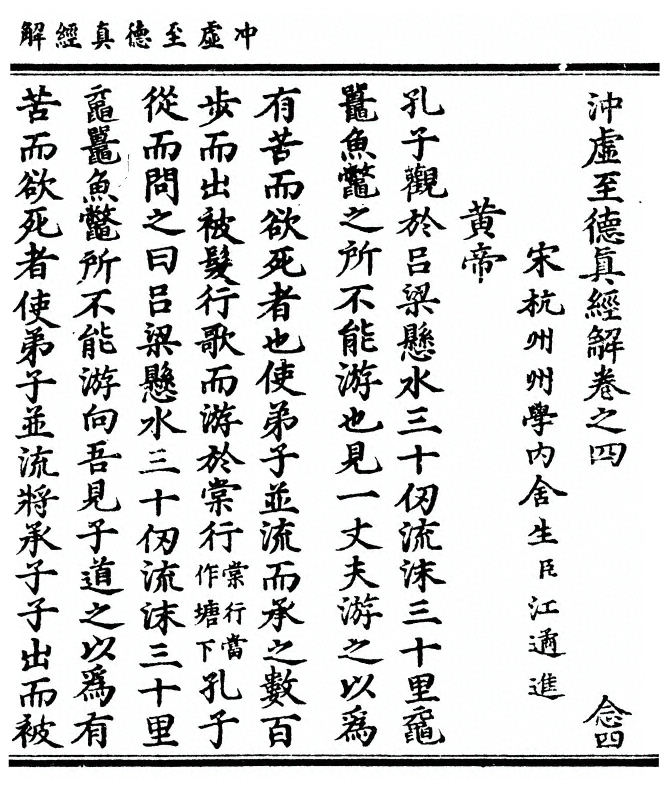 冲虛至德真經解
沖虛至德真經解卷之四　念四
宋杭州州學內舍生臣江遹進
黃帝
孔子觀於呂梁懸水三十仞流沫三十里黿
鼉魚鼈之所不能游也見一丈夫游之以爲
有苦而欲死者也使弟子並流而承之數百
步而出被髮行歌而游於棠行棠行當作塘下孔子
從而問之曰呂梁懸水三十仞流沫三十里
黿鼉魚鼈所不能游向吾見子道之以爲有
苦而欲死者使弟子並流將承子子出而被